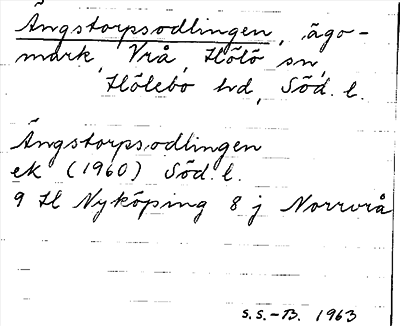 Ängstorpsodlingen, ägo-
mark, Vrå, Hölö sn,
Hölebo hd, Söd. l.
Ängstorpsodlingen
ek (1960) Söd. l.
9 H Nyköping 8 j Norrvrå
S.S.-B. 1963